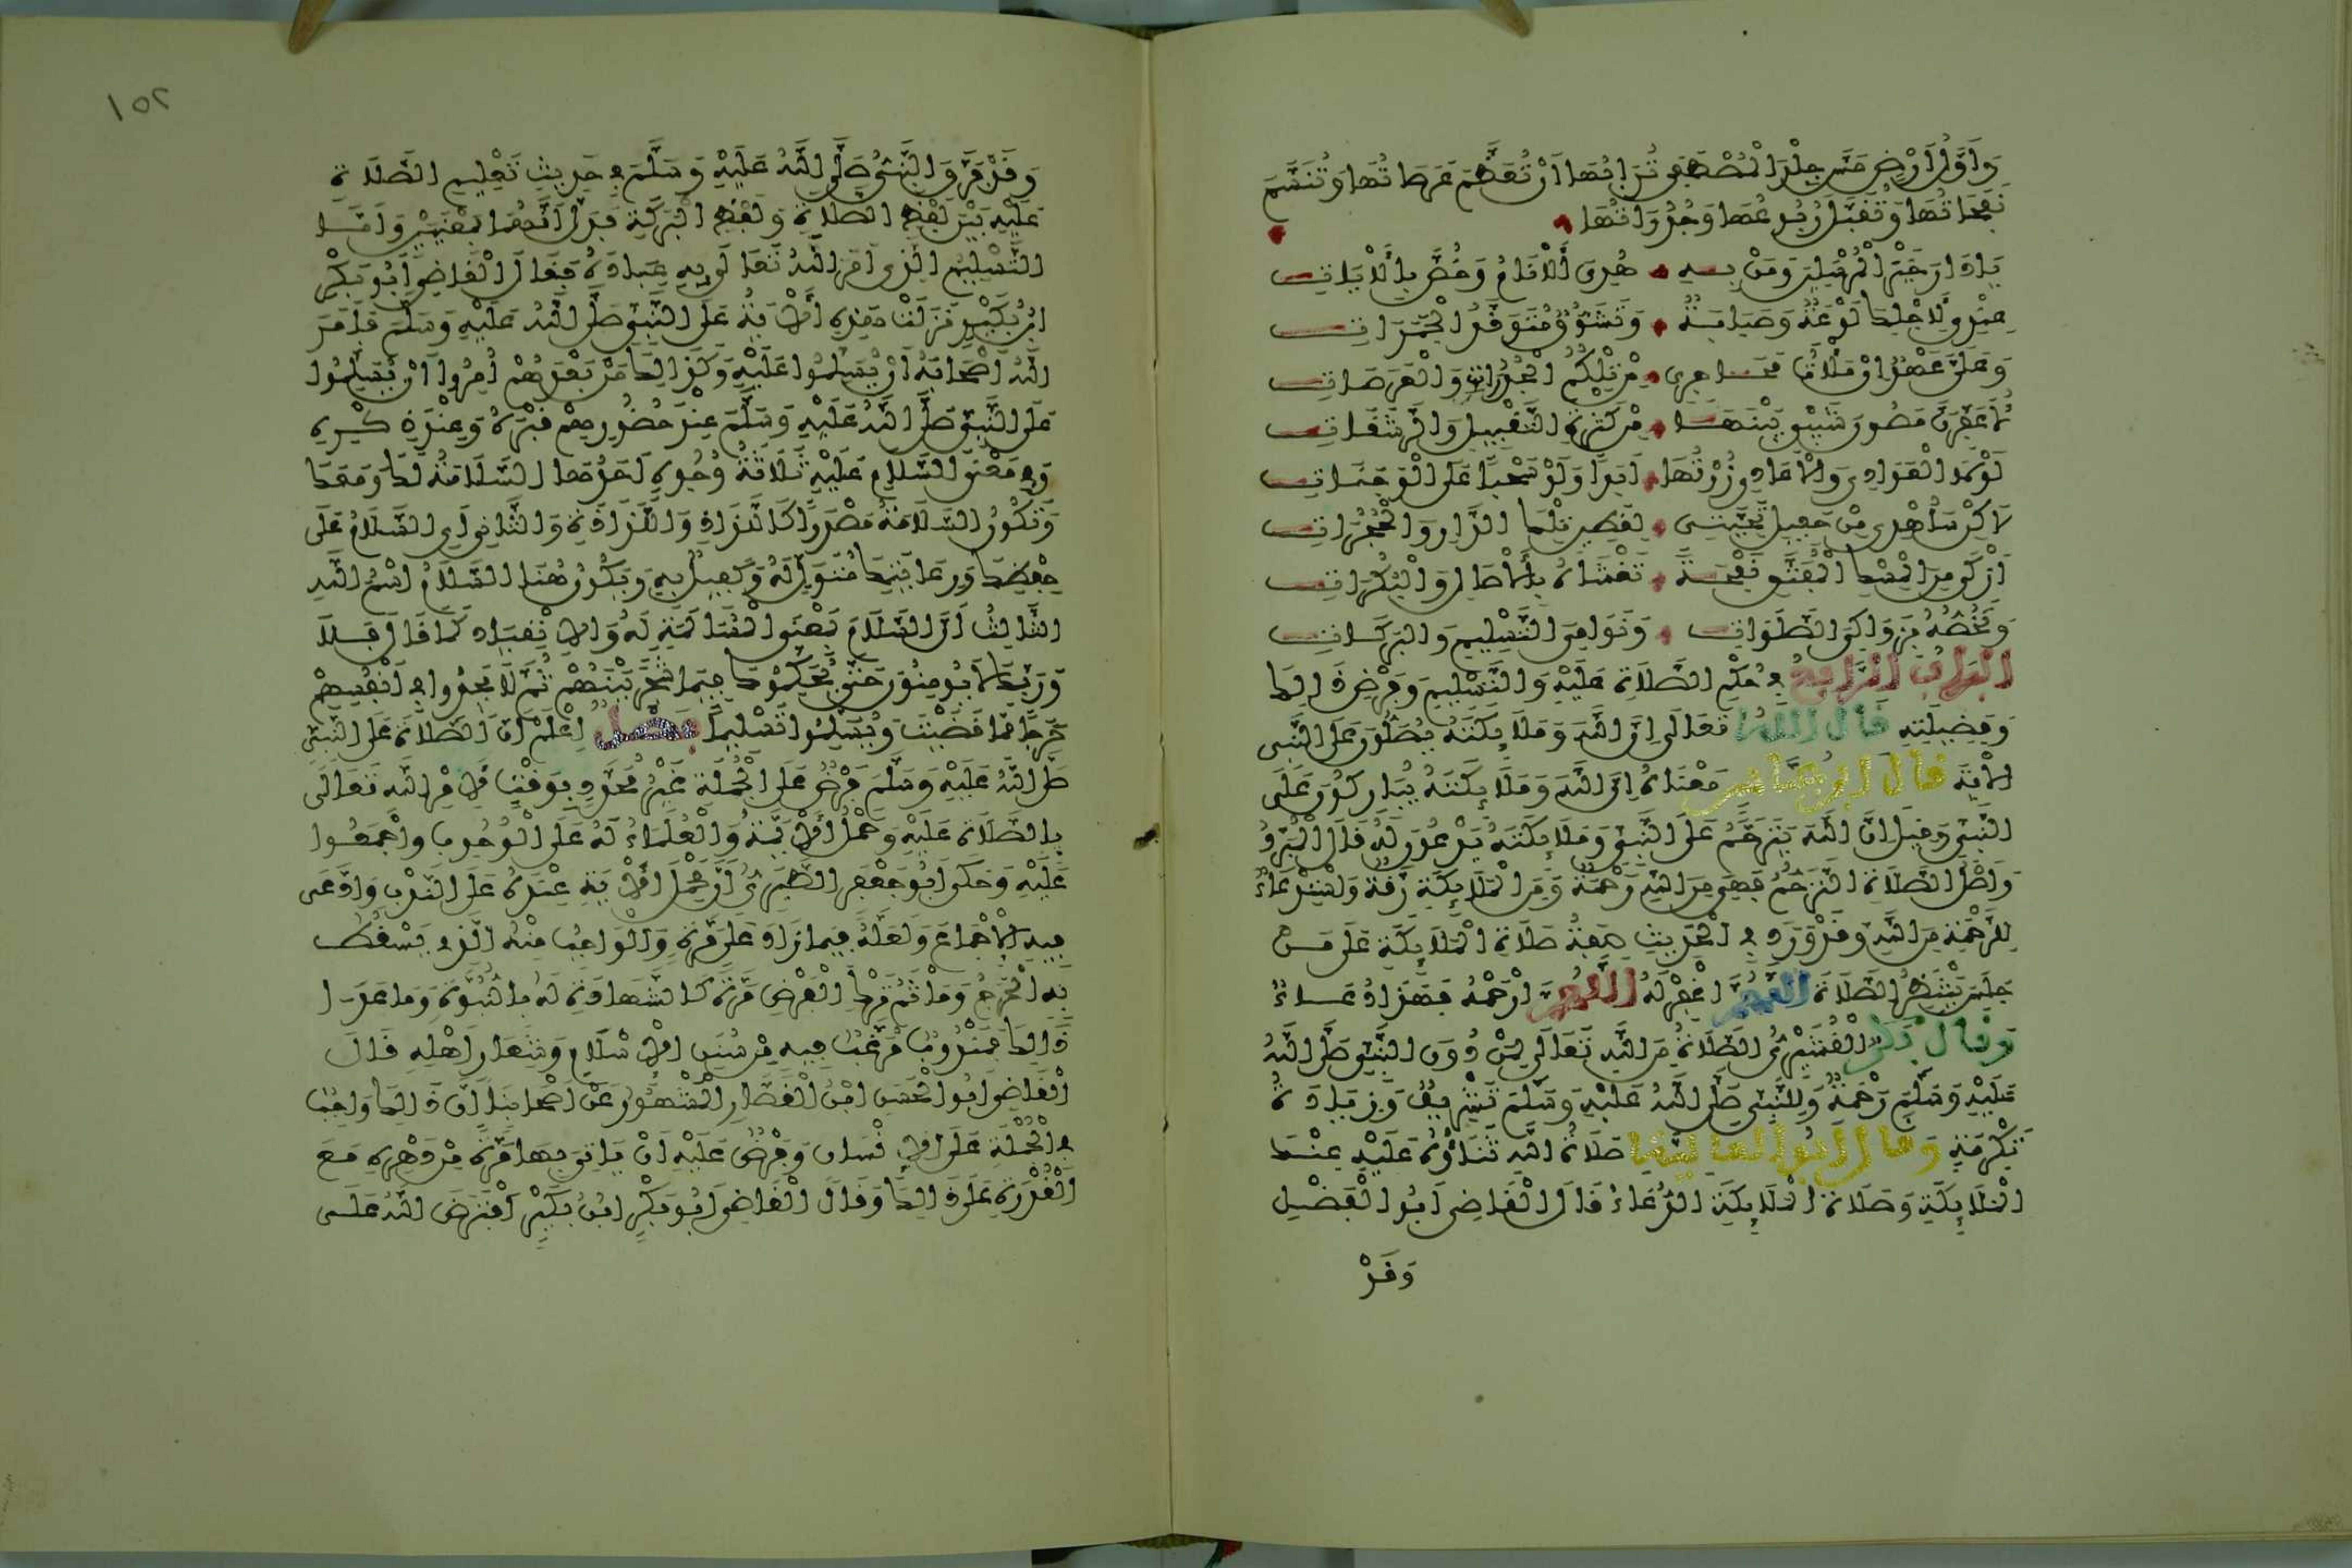 وَأَوَّلُ أَرْضٍ مَسَّ جِلْدَ الْمُصْطَفَى تُرَابُهَا أَنْ تُعَظَّمَ عَرَصَاتُهَا وَتُتَنَسَّمَ
نَفَحَاتُهَا وَتُقَبَّلَ رُبُوعُهَا وَجُدُرَاتُهَا
يَا دَارَ خَيْرِ الْمُرْسَلِينَ وَمَنْ بِهِ هُدِيَ الْأَنَامُ وَخُصَّ بِالْآيَاتِ
عِنْدِي لِأَجْلِكَ لَوْعَةٌ وَصَبَابَةٌ وَتَشَوُّقٌ مُتَوَقِّدُ الْجَمَرَاتِ
وَعَلَيَّ عَهْدٌ إِنْ مَلَأْتُ مَحَاجِرِي مِنْ تِلْكُمُ الْجُدُرَاتِ وَالْعَرَصَاتِ
لَأُعَفِّرَنَّ مَصُونَ شَيْبِي بَيْنَهَا مِنْ كَثْرَةِ التَّقْبِيلِ وَالرَّشَفَاتِ
لَوْلَا الْعَوَادِي وَالْأَعَادِي زُرْتُهَا أَبَدًا وَلَوْ سَحْبًا عَلَى الْوَجَنَاتِ
لَاكِنْ سَأُهْدِي مِنْ حَفِيلِ تَحِيَّتِي لِقَطِينِ تِلْكَ الدَّارِ وَالْحُجُرَاتِ
أَزْكَى مِنَ الْمِسْكِ الْمُفَتَّقِ نَفْحَةً تَغْشَاهُ بِالْآصَالِ وَالْبُكُرَاتِ
وَتَخُصُّهُ بِزَوَاكِي الصَّلَوَاتِ وَنَوَامِي التَّسْلِيمِ وَالْبَرَكَاتِ
الْبَابُ الرَّابِعُ فِي حُكْمِ الصَّلَاةِ عَلَيْهِ وَالتَّسْلِيمِ وَفَرْضِ ذَالِكَ
وَفَضِيلَتِهِ قَالَ اللَّهُ تَعَالَى إِنَّ اللَّهَ وَمَلَائِكَتَهُ يُصَلُّونَ عَلَى النَّبِيِّ
الْآيَةَ قَالَ ابْنُ عَبَّاسٍ مَعْنَاهُ إِنَّ اللَّهَ وَمَلَائِكَتَهُ يُبَارِكُونَ عَلَى
النَّبِيِّ وَقِيلَ إِنَّ اللَّهَ يَتَرَحَّمُ عَلَى النَّبِيِّ وَمَلَائِكَتَهُ يَدْعُونَ لَهُ قَالَ الْمُبَرِّدُ
وَأَصْلُ الصَّلَاةِ التَّرَحُّمُ فَهِيَ مِنَ اللَّهِ رَحْمَةٌ وَمِنَ الْمَلَائِكَةِ رِقَّةٌ وَاسْتِدْعَاءٌ
لِلرَّحْمَةِ مِنَ اللَّهِ وَقَدْ وَرَدَ فِي الْحَدِيثِ صِفَةُ صَلَاةِ الْمَلَائِكَةِ عَلَى مَنْ
جَلَسَ يَنْتَظِرُ الصَّلَاةَ اللَّهُمَّ اغْفِرْ لَهُ اللَّهُمَّ ارْحَمْهُ فَهَذَا دُعَاءٌ
وَقَالَ بَكْرٌ الْقُشَيْرِيُّ الصَّلَاةُ مِنَ اللَّهِ تَعَالَى لِمَنْ دُونَ النَّبِيِّ صَلَّى اللَّهُ
عَلَيْهِ وَسَلَّمَ رَحْمَةٌ وَلِلنَّبِيِّ صَلَّى اللَّهُ عَلَيْهِ وَسَلَّمَ تَشْرِيفٌ وَزِيَادَةُ
تَكْرِمَةٍ وَقَالَ أَبُو الْعَالِيَةِ صَلَاةُ اللَّهِ ثَنَاؤُهُ عَلَيْهِ عِنْدَ
الْمَلَائِكَةِ وَصَلَاةُ الْمَلَائِكَةِ الدُّعَاءُ قَالَ الْقَاضِي أَبُو الْفَضْلِ
وَقَدْ
١٥٢
وَقَدْ فَرَّقَ النَّبِيُّ صَلَّى اللَّهُ عَلَيْهِ وَسَلَّمَ فِي حَدِيثِ تَعْلِيمِ الصَّلَاةِ
عَلَيْهِ بَيْنَ لَفْظِ الصَّلَاةِ وَلَفْظِ الْبَرَكَةِ فَدَلَّ أَنَّهُمَا بِمَعْنَيَيْنِ وَأَمَّا
التَّسْلِيمُ الَّذِي أَمَرَ اللَّهُ تَعَالَى بِهِ عِبَادَهُ فَقَالَ الْقَاضِي أَبُو بَكْرِ
ابْنُ بُكَيْرٍ نَزَلَتْ هَذِهِ الْآيَةُ عَلَى النَّبِيِّ صَلَّى اللَّهُ عَلَيْهِ وَسَلَّمَ فَأَمَرَ
اللَّهُ أَصْحَابَهُ أَنْ يُسَلِّمُوا عَلَيْهِ وَكَذَالِكَ مَنْ بَعْدَهُمْ أُمِرُوا أَنْ يُسَلِّمُوا
عَلَى النَّبِيِّ صَلَّى اللَّهُ عَلَيْهِ وَسَلَّمَ عِنْدَ حُضُورِهِمْ قَبْرَهُ وَعِنْدَ ذِكْرِهِ
وَفِي مَعْنَى السَّلَامِ عَلَيْهِ ثَلَاثَةُ وُجُوهٍ أَحَدُهَا السَّلَامَةُ لَكَ وَمَعَكَ
وَتَكُونُ السَّلَامَةُ مَصْدَرًا كَاللَّذَاذِ وَاللَّذَاذَةِ وَالثَّانِي أَيِ السَّلَامُ عَلَى
حِفْظِكَ وَرِعَايَتِكَ مُتَوَلٍّ لَهُ وَكَفِيلٌ بِهِ وَيَكُونُ هُنَا السَّلَامُ اسْمُ اللَّهِ
الثَّالِثُ أَنَّ السَّلَامَ بِمَعْنَى الْمُسَالَمَةِ لَهُ وَالِانْقِيَادِ كَمَا قَالَ فَلَا
وَرَبِّكَ لَا يُومِنُونَ حَتَّى يُحَكِّمُوكَ فِيمَا شَجَرَ بَيْنَهُمْ ثُمَّ لَا يَجِدُوا فِي أَنْفُسِهِمْ
حَرَجًا مِمَّا قَضَيْتَ وَيُسَلِّمُوا تَسْلِيمًا فَصْلٌ اِعْلَمْ أَنَّ الصَّلَاةَ عَلَى النَّبِيِّ
صَلَّى اللَّهُ عَلَيْهِ وَسَلَّمَ فَرْضٌ عَلَى الْجُمْلَةِ غَيْرُ مُحَدَّدٍ بِوَقْتٍ لِأَمْرِ اللَّهِ تَعَالَى
بِالصَّلَاةِ عَلَيْهِ وَحَمْلُ الْأَئِمَّةِ وَالْعُلَمَاءِ لَهُ عَلَى الْوُجُوبِ وَأَجْمَعُوا
عَلَيْهِ وَحَكَى أَبُو جَعْفَرٍ الطَّبَرِيُّ أَنَّ مَحْمِلَ الْآيَةِ عِنْدَهُ عَلَى النَّدْبِ وَادَّعَى
فِيهِ الْإِجْمَاعَ وَلَعَلَّهُ فِيمَا زَادَ عَلَى مَرَّةٍ وَالْوَاجِبُ مِنْهُ الَّذِي يَسْقُطُ
بِهِ الْحَرَجُ وَمَأْثَمُ تَرْكِ الْفَرْضِ مَرَّةً كَالشَّهَادَةِ لَهُ بِالنُّبُوَّةِ وَمَا عَدَا
ذَالِكَ فَمَنْدُوبٌ مُرَغَّبٌ فِيهِ مِنْ سُنَنِ الْإِسْلَامِ وَشِعَارِ أَهْلِهِ قَالَ
الْقَاضِي أَبُو الْحَسَنِ ابْنُ الْقَصَّارِ الْمَشْهُورُ عَنْ أَصْحَابِنَا أَنَّ ذَالِكَ وَاجِبٌ
فِي الْجُمْلَةِ عَلَى الْإِنْسَانِ وَفَرْضٌ عَلَيْهِ أَنْ يَاتِيَ بِهَا مَرَّةً مِنْ دَهْرِهِ مَعَ
الْقُدْرَةِ عَلَى ذَالِكَ وَقَالَ الْقَاضِي أَبُو بَكْرِ ابْنُ بُكَيْرٍ افْتَرَضَ اللَّهُ عَلَى